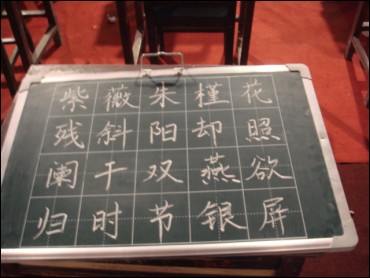 紫薇朱槿花
残斜阳却照
阑干双燕欲
归时节银屏